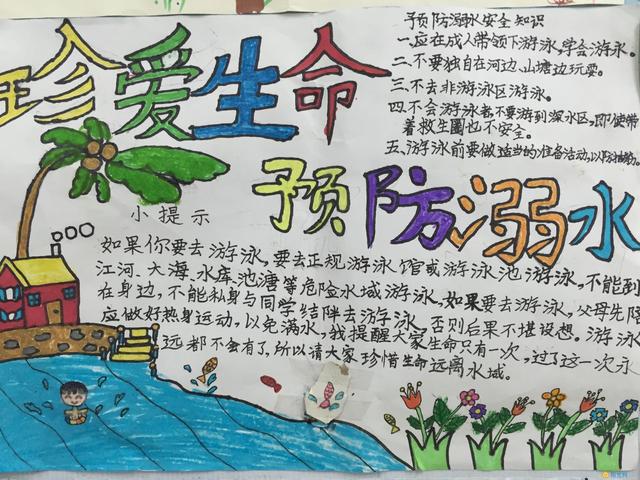 珍爱生命
预防溺水安全知识
一.应在成人带领下游泳,学会游泳。
二.不要独自在河边、山塘边玩耍。
三.不去非游泳区游泳。
四.不会游泳者,不要游到深水区,即使带
着救生圈也不安全。
五、游泳前要做适当的准备活动,以防抽筋。
预防溺水
小提示
如果你要去游泳,要去正规游泳馆或游泳池游泳,不能到
江河、大海、水库池塘等危险水域游泳,如果要去游泳,父母先陪
在身边,不能私身与同学结阵去游泳,否则后果不堪设想。游泳
应做好热身运动,以免满水,我提醒大家生命只有一次,过了这一次永
远都不会有了,所以请大家珍惜生命远离水域。